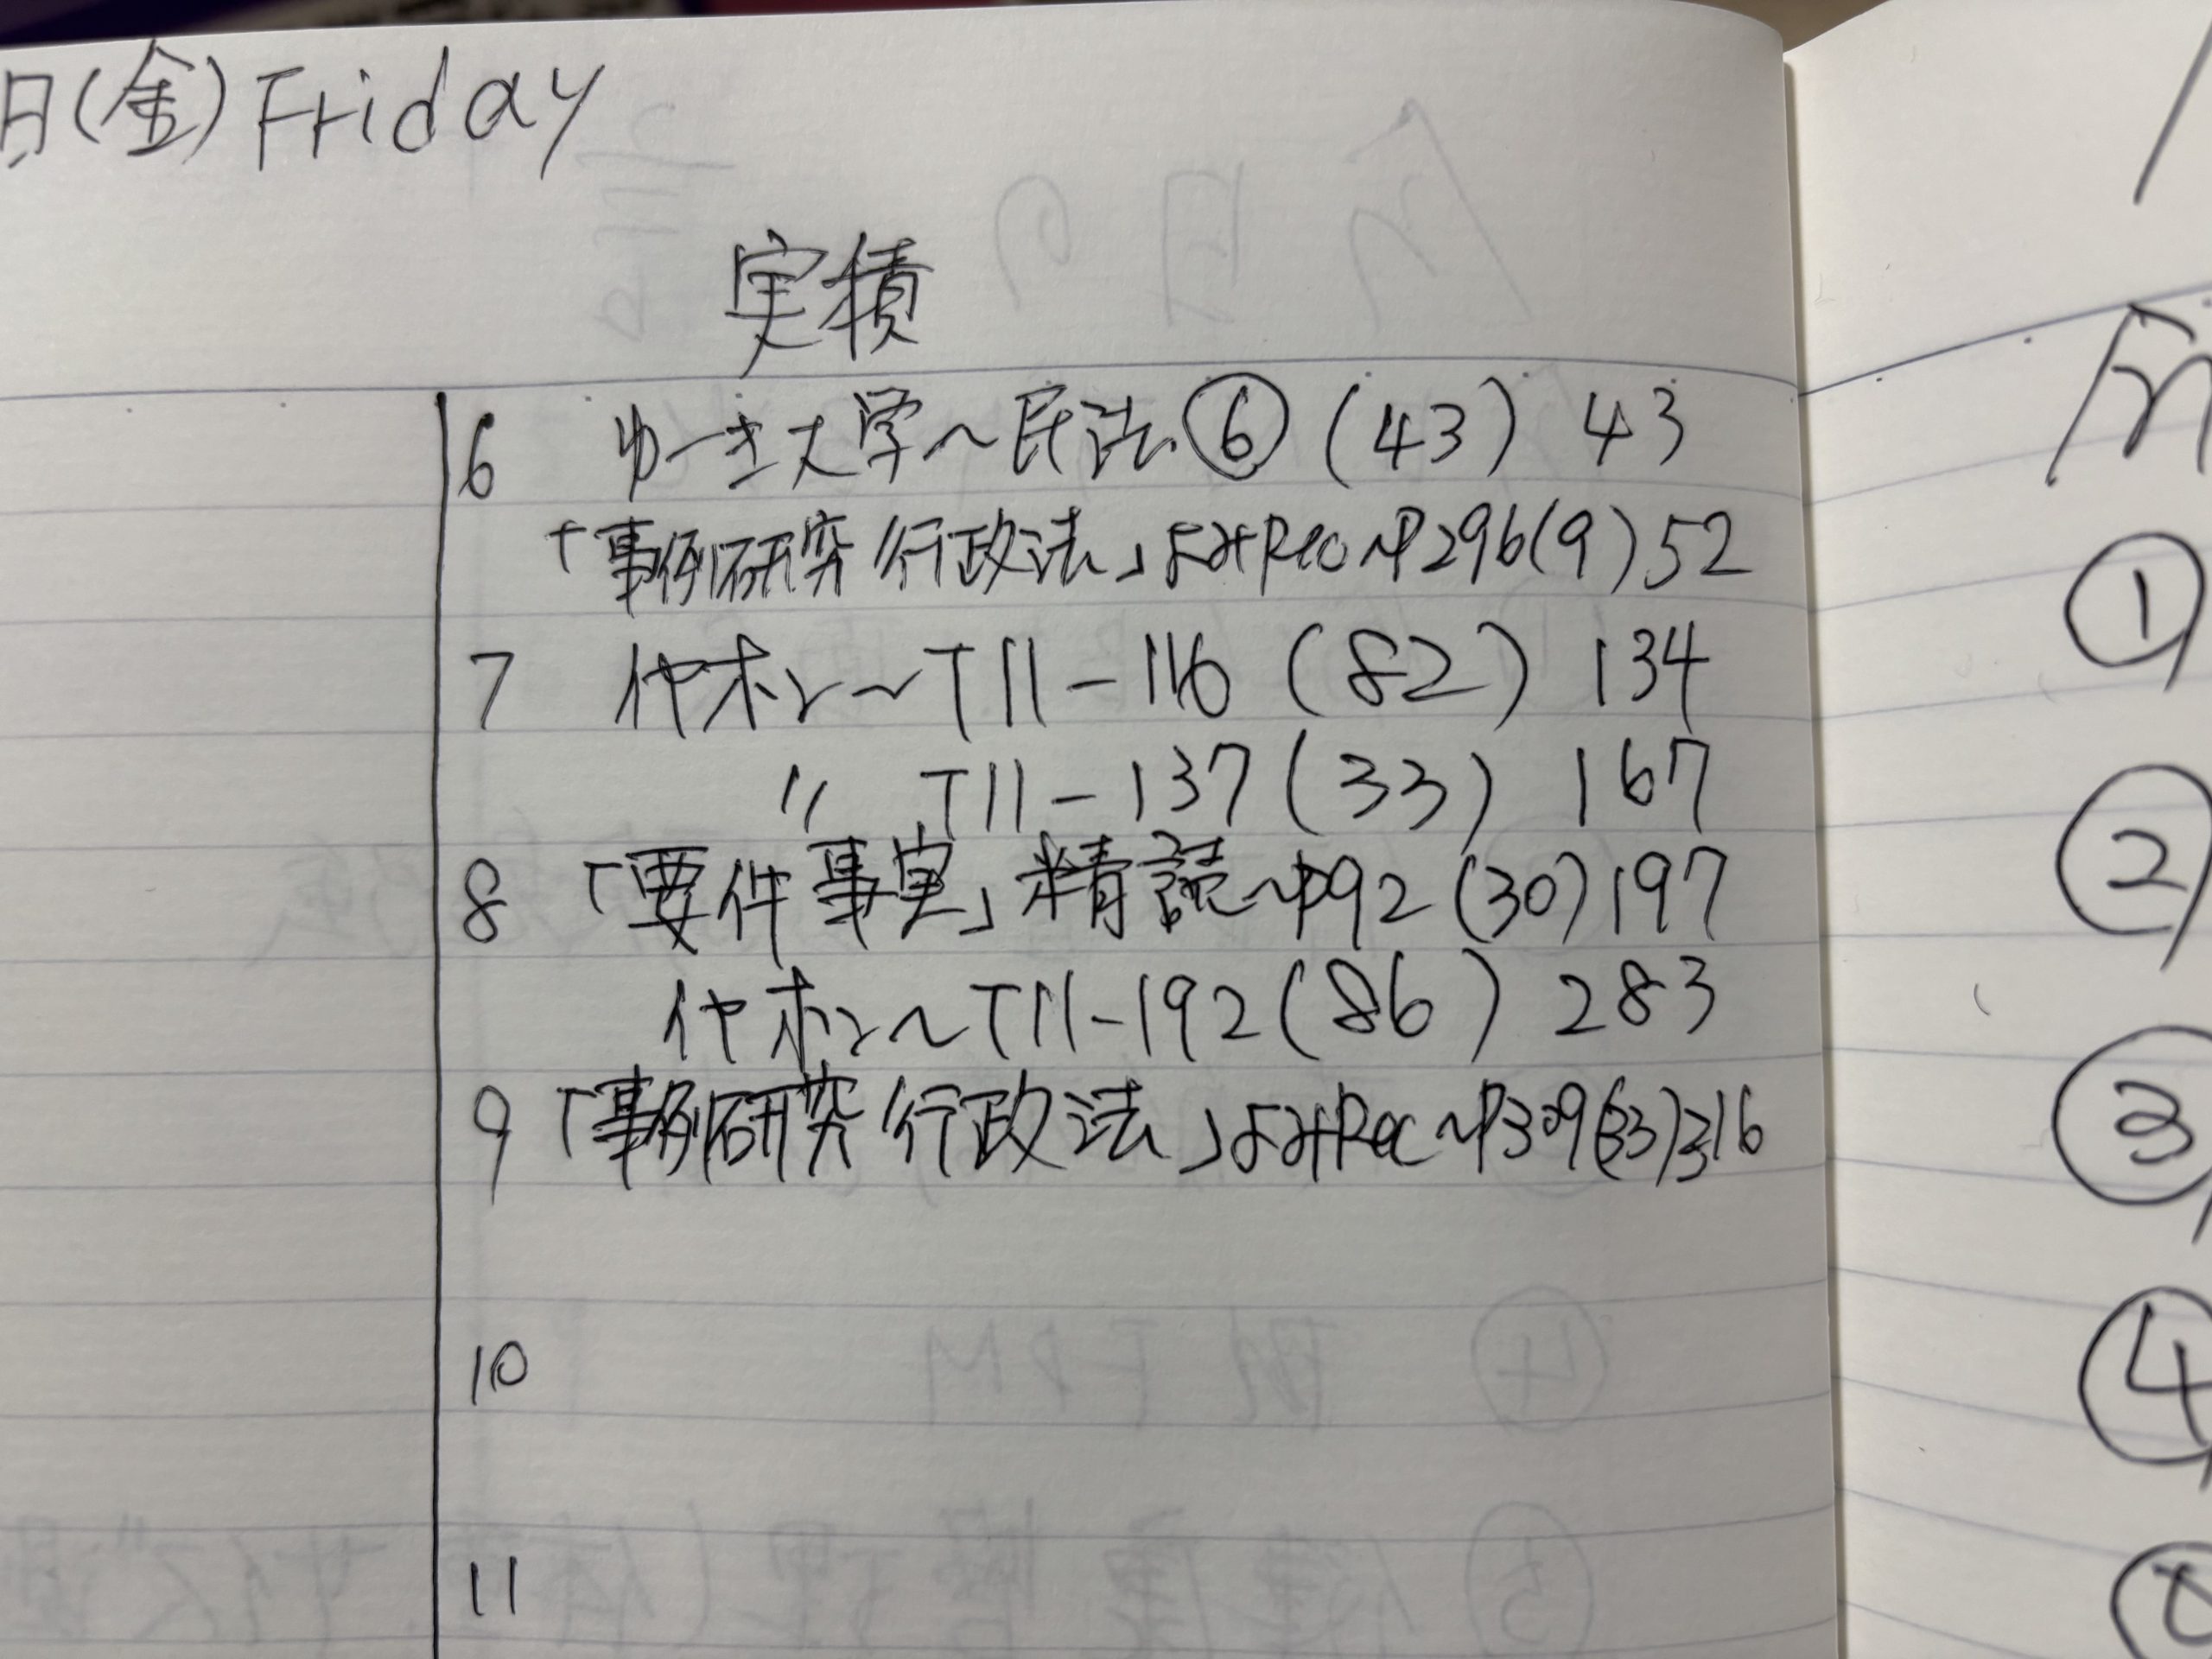 日(金) Friday
実績
6 ゆーき大学～民法⑥ (43) 43
「事例研究行政法」 Rec～P296(9) 52
7 ～T11-116 (82) 134
〃 T11-137 (33) 167
8 「要件事実」精読～P92 (30) 197
～T11-192 (86) 283
9 「事例研究行政法」 Rec～P309(33) 316
10
11
①
②
③
④